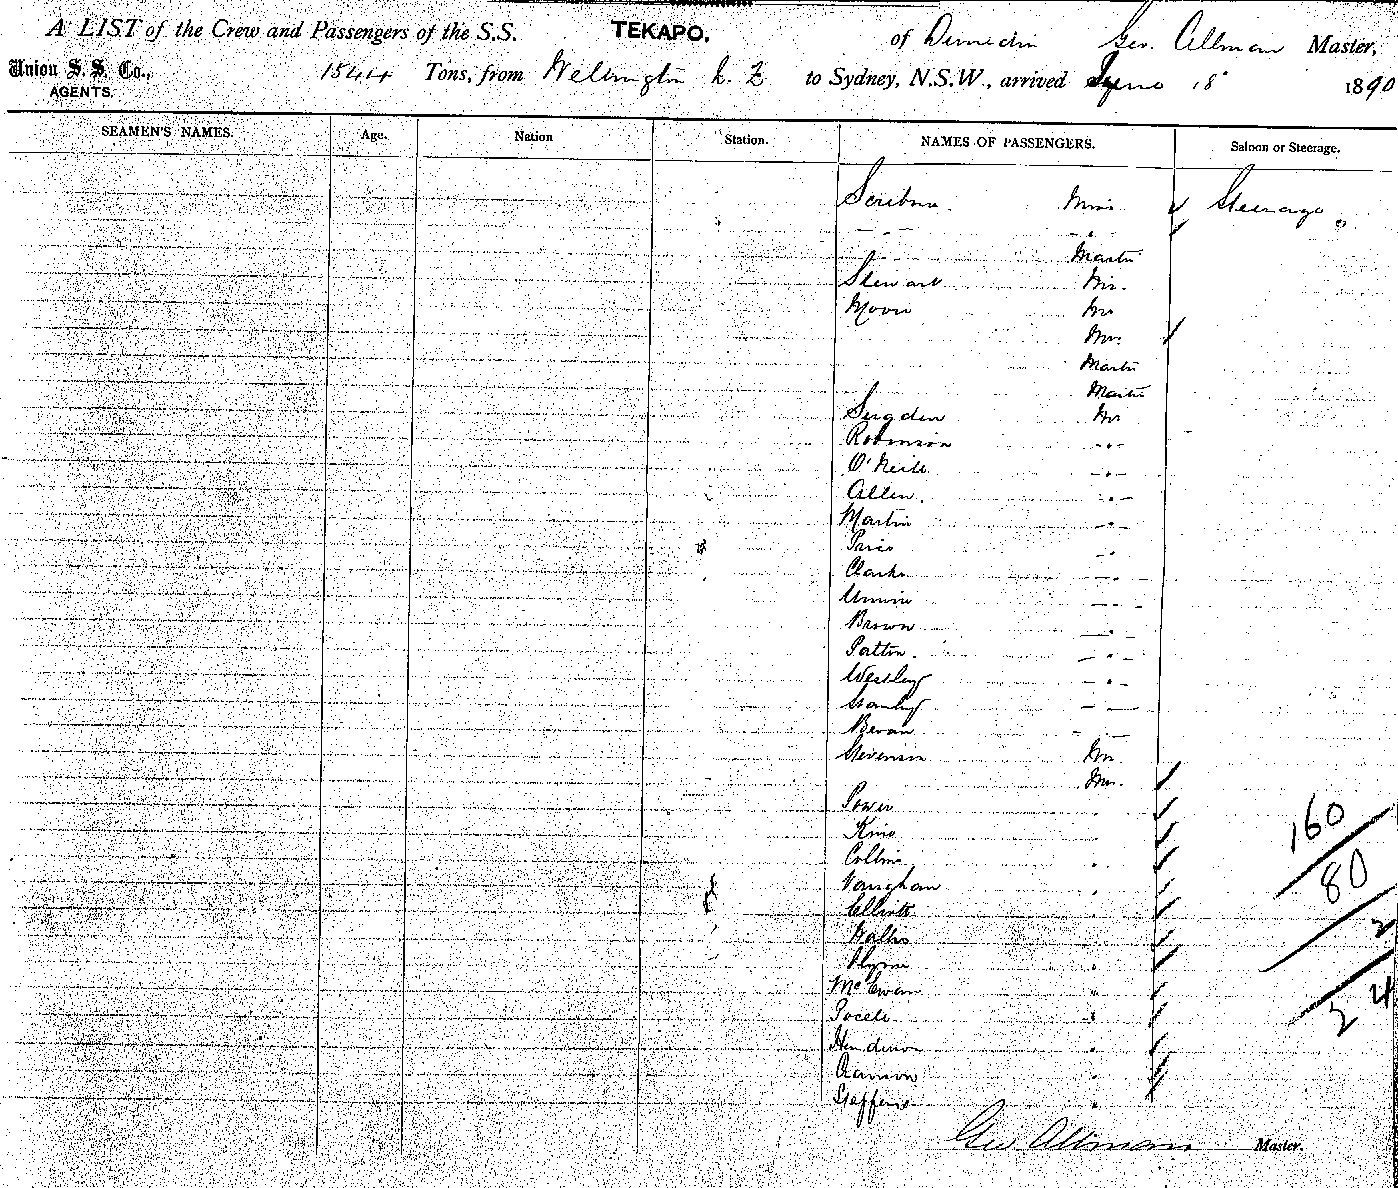 A LIST of the Crew and Passengers of the S.S. TEKAPO, of Dunedin Geo. Allman Master,
Union S. S. Co., AGENTS. 1544 Tons, from Wellington N. Z to Sydney, N.S.W., arrived 18 1890
SEAMEN'S NAMES. Age. Nation Station. NAMES OF PASSENGERS. Saloon or Steerage.
Miss Steerage
Master
Stewart Mr.
Moore Mr
Mrs
Master
Master
Sugden Mr
Robinson
O'Neill
Allen.
Martin
Price
Clarke
Unwin
Brown
Patton.
Westley
Stanley
Bevan
Stevenson Mr
Mrs.
Power
King
Collins
Vaughan
Elliott
Wallis
Flynn
McEwan
Henderson
160
80
2
24
Geo Allman Master.